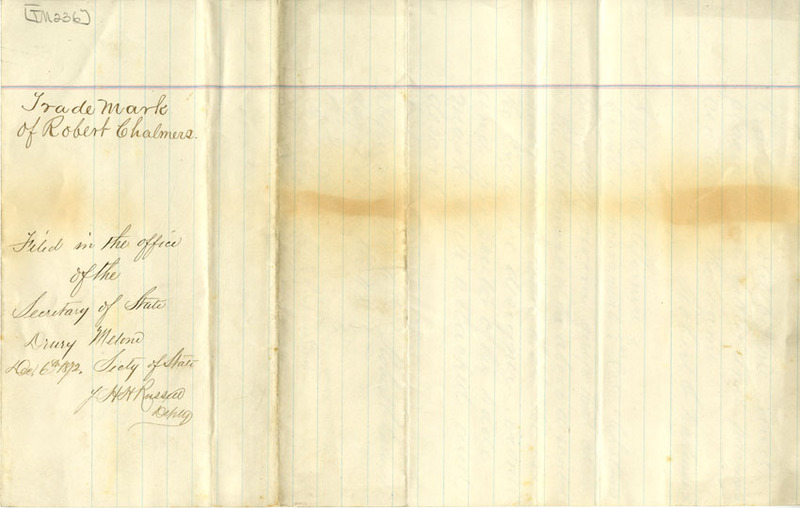 [TM236]
Trade Mark
of Robert Chalmers.
Filed in the office
of the
Secretary of State
Drury Melone
Dec 6th 1872. Secty of State
H H Russell
Deputy